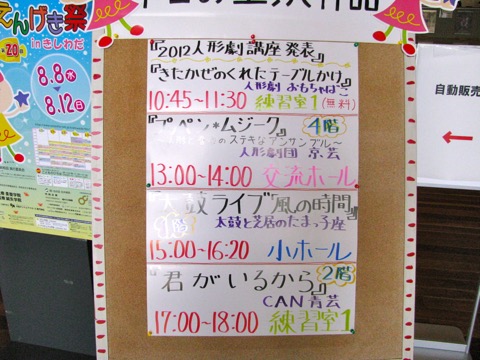 えんげき祭
第20回
inきしわだ
8.8㊌
8.12㊐
自動販売
『2012人形劇講座 発表』
『きたかぜのくれたテーブルかけ』
人形劇 おもちゃばこ
10:45~11:30 練習室1(無料)
『プペン*ムジーク』 4階
のステキなアンサンブル~
人形劇団 京芸
13:00~14:00 交流ホール
『太鼓ライブ『風の時間』
1階 太鼓と芝居のたまっ子座
15:00~16:20 小ホール
『君がいるから』 2階
CAN青芸
17:00~18:00 練習室1